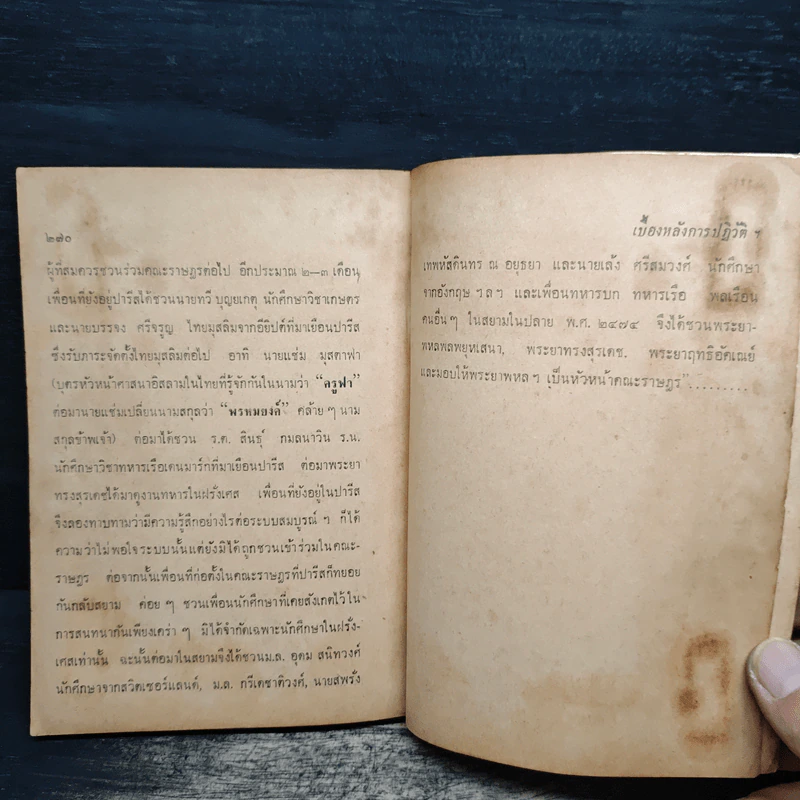 ๒๗๐
ผู้ที่สมควรชวนร่วมคณะราษฎรต่อไป อีกประมาณ ๒—๓ เดือน,
เพื่อนที่ยังอยู่ปารีสได้ชวนนายทวี บุญยเกตุ นักศึกษาวิชาเกษตร
และนายบรรจง ศรีจรูญ ไทยมุสลิมจากอียิปต์ที่มาเยือนปารีส
ซึ่งรับภาระจัดตั้งไทยมุสลิมต่อไป อาทิ นายแช่ม มุสตาฟา
(บุตรหัวหน้าศาสนาอิสลามในไทยที่รู้จักกันในนามว่า “ครูฟา”
ต่อมานายแช่มเปลี่ยนนามสกุลว่า “พรหมยงค์” คล้าย ๆ นาม
สกุลข้าพเจ้า) ต่อมาได้ชวน ร.ต. สินธุ์ กมลนาวิน ร.น.
นักศึกษาวิชาทหารเรือเดนมาร์กที่มาเยือนปารีส ต่อมาพระยา
ทรงสุรเดชได้มาดูงานทหารในฝรั่งเศส เพื่อนที่ยังอยู่ในปารีส
จึงลองทาบทามว่ามีความรู้สึกอย่างไรต่อระบบสมบูรณ์ ฯ ก็ได้
ความว่าไม่พอใจระบบนั้นแต่ยังมิได้ถูกชวนเข้าร่วมในคณะ-
ราษฎร ต่อจากนั้นเพื่อนที่ก่อตั้งในคณะราษฎรที่ปารีสก็ทยอย
กันกลับสยาม ค่อย ๆ ชวนเพื่อนนักศึกษาที่เคยสังเกตไว้ใน
การสนทนากันเพียงเคร่า ๆ มิได้จำกัดเฉพาะนักศึกษาในฝรั่ง-
เศสเท่านั้น ฉะนั้นต่อมาในสยามจึงได้ชวนม.ล. อุดม สนิทวงศ์
นักศึกษาจากสวิตเซอร์แลนด์, ม.ล. กรีเดชาติวงศ์, นายสพรั่ง
เบื้องหลังการปฏิวัติ ฯ
เทพหัสดินทร ณ อยุธยา และนายเล้ง ศรีสมวงศ์ นักศึกษา
จากอังกฤษ ฯลฯ และเพื่อนทหารบก ทหารเรือ พลเรือน
คนอื่นๆ ในสยามในปลาย พ.ศ. ๒๔๗๔ จึงได้ชวนพระยา-
พหลพลพยุหเสนา, พระยาทรงสุรเดช, พระยาฤทธิอัคเณย์
และมอบให้พระยาพหล ฯ เป็นหัวหน้าคณะราษฎร”.........